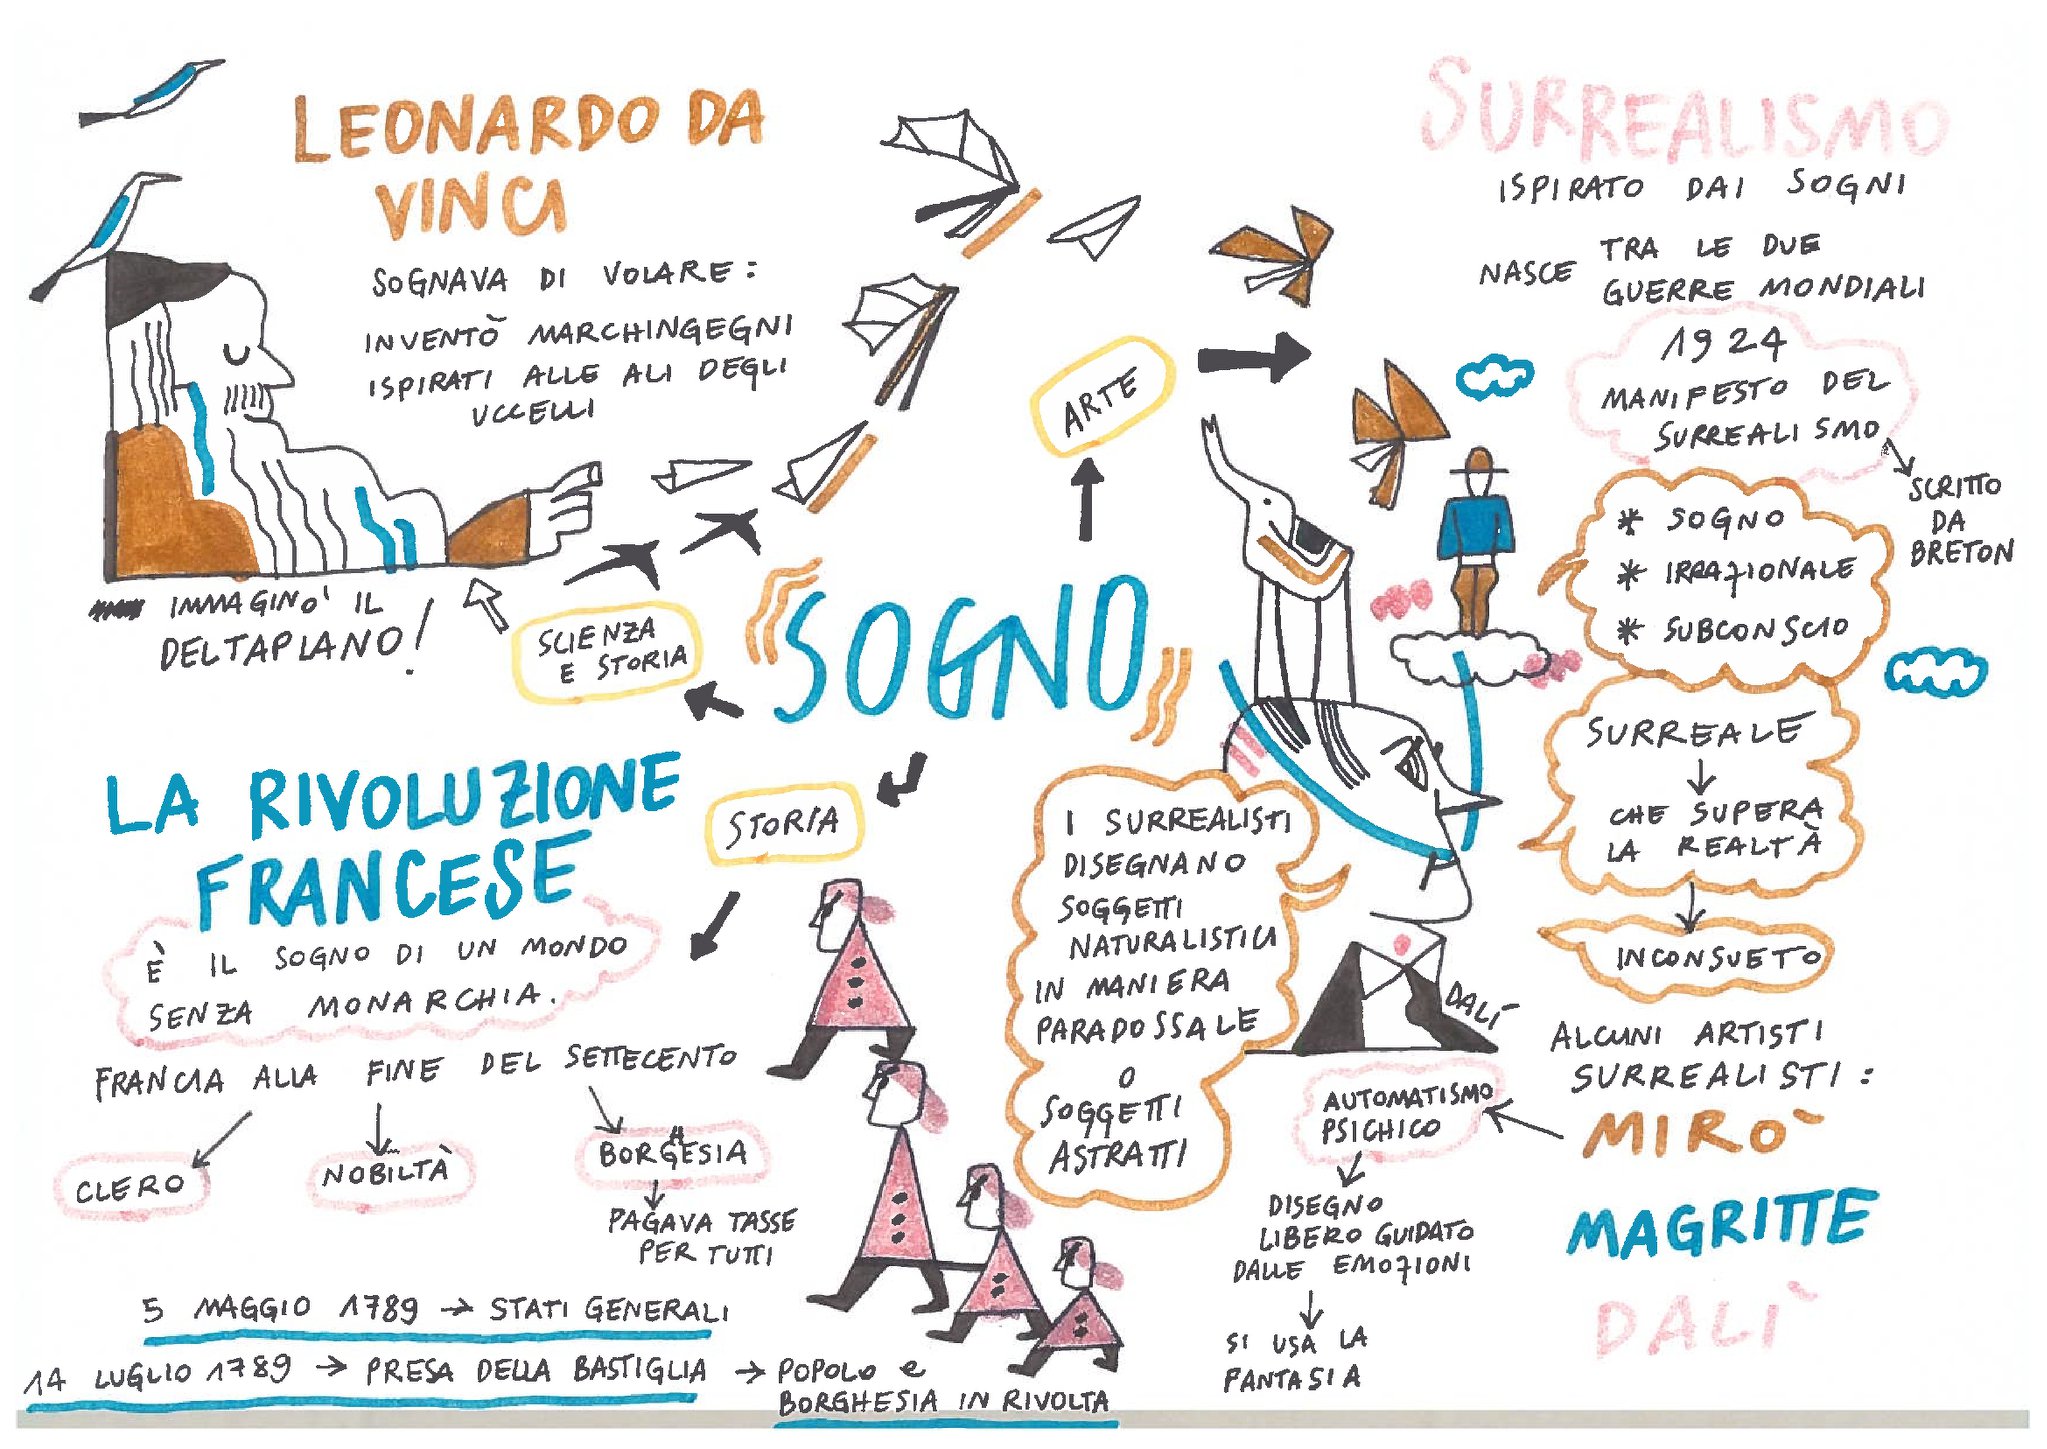 LEONARDO DA
VINCI
SOGNAVA DI VOLARE:
INVENTÒ MARCHINGEGNI
ISPIRATI ALLE ALI DEGLI
UCCELLI
IMMAGINO' IL
DELTAPLANO!
SCIENZA
E STORIA
SOGNO
ARTE
STORIA
SURREALISMO
ISPIRATO DAI SOGNI
NASCE TRA LE DUE
GUERRE MONDIALI
1924
MANIFESTO DEL
SURREALISMO
SCRITTO
DA
BRETON
* SOGNO
* IRRAZIONALE
* SUBCONSCIO
SURREALE
CHE SUPERA
LA REALTÀ
INCONSUETO
I SURREALISTI
DISEGNANO
SOGGETTI
NATURALISTICI
IN MANIERA
PARADOSSALE
O
SOGGETTI
ASTRATTI
DALÍ
ALCUNI ARTISTI
SURREALISTI:
MIRO'
MAGRITTE
DALI'
AUTOMATISMO
PSICHICO
DISEGNO
LIBERO GUIDATO
DALLE EMOZIONI
SI USA LA
FANTASIA
LA RIVOLUZIONE
FRANCESE
È IL SOGNO DI UN MONDO
SENZA MONARCHIA.
FRANCIA ALLA FINE DEL SETTECENTO
CLERO
NOBILTÀ
BORGHESIA
PAGAVA TASSE
PER TUTTI
5 MAGGIO 1789 → STATI GENERALI
14 LUGLIO 1789 → PRESA DELLA BASTIGLIA → POPOLO e
BORGHESIA IN RIVOLTA